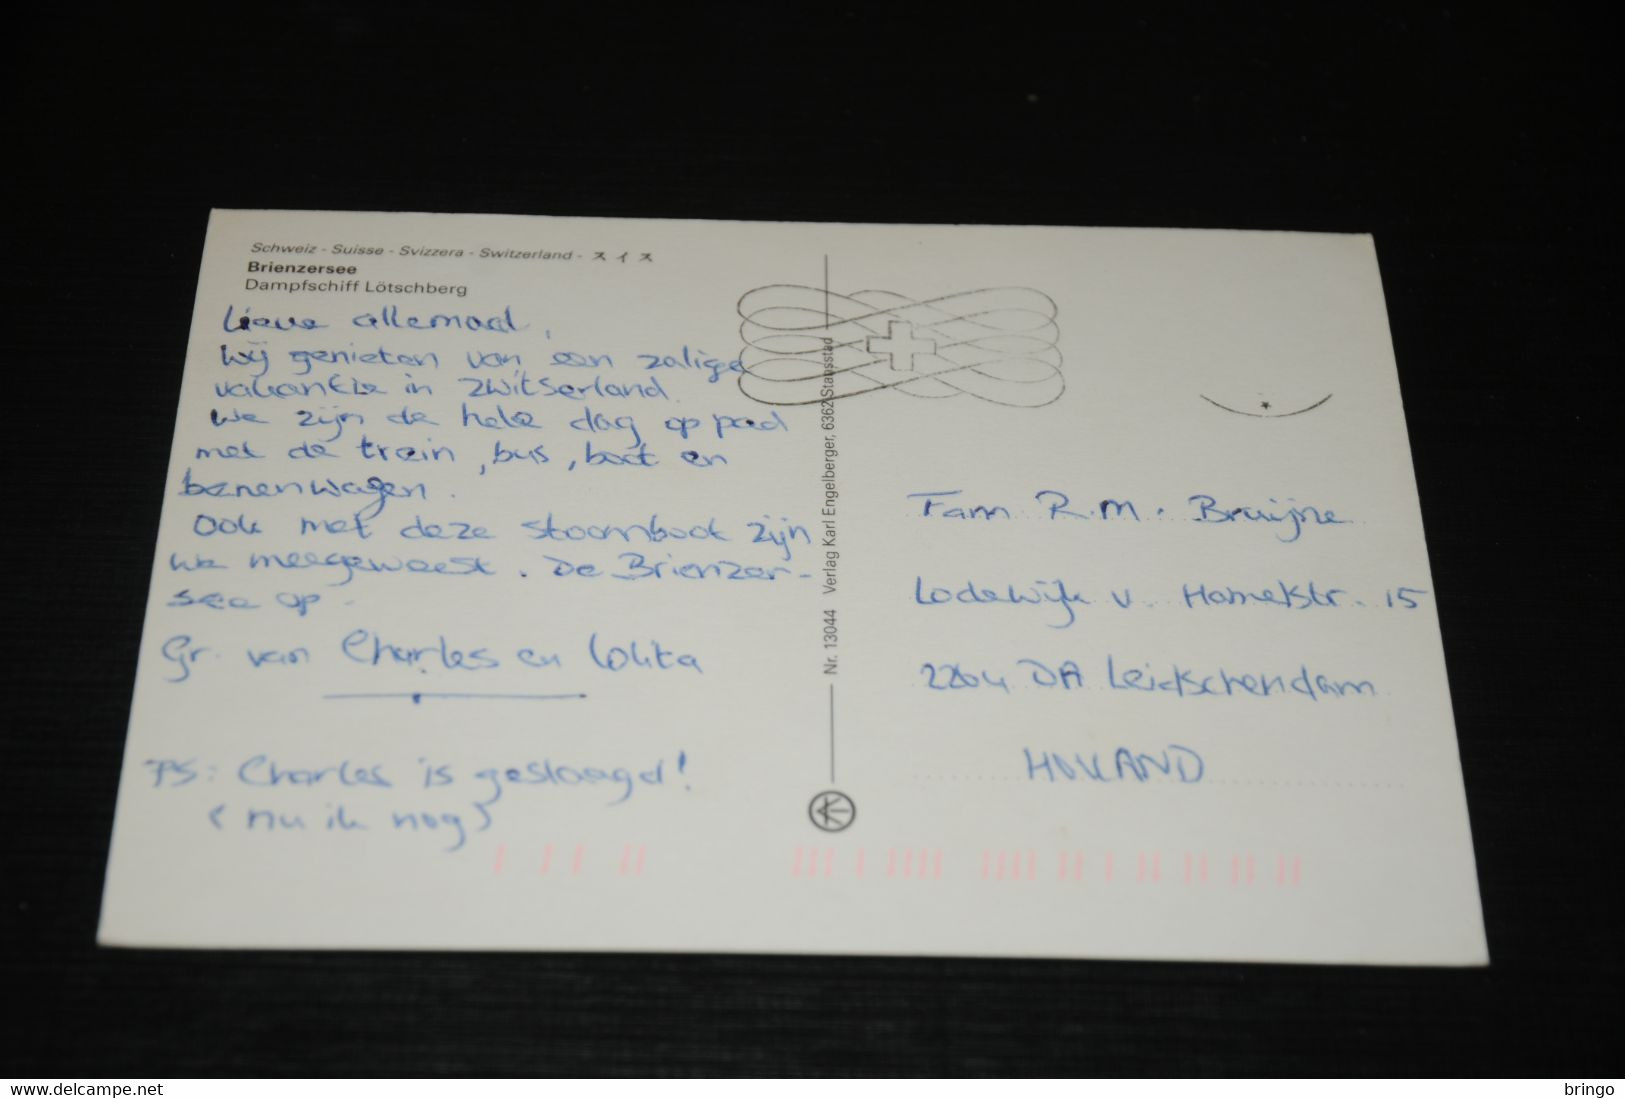 Schweiz - Suisse - Svizzera - Switzerland - スイス
Brienzersee
Dampfschiff Lötschberg
Lieve allemaal,
Wij genieten van een zalige
vakantie in Zwitserland.
We zijn de hele dag op pad
met de trein, bus, boot en
benenwagen.
Ook met deze stoomboot zijn
we meegeweest. De Brienzer-
see op.
Gr. van Charles en Lolita
PS: Charles is geslaagd!
(nu ik nog)
Nr. 13044 Verlag Karl Engelberger, 6362 Stansstad
Fam R.M. Bruijne
Lodewijk v. Hamelstr. 15
2264 DA Leidschendam
HOLLAND
www.delcampe.net
bringo